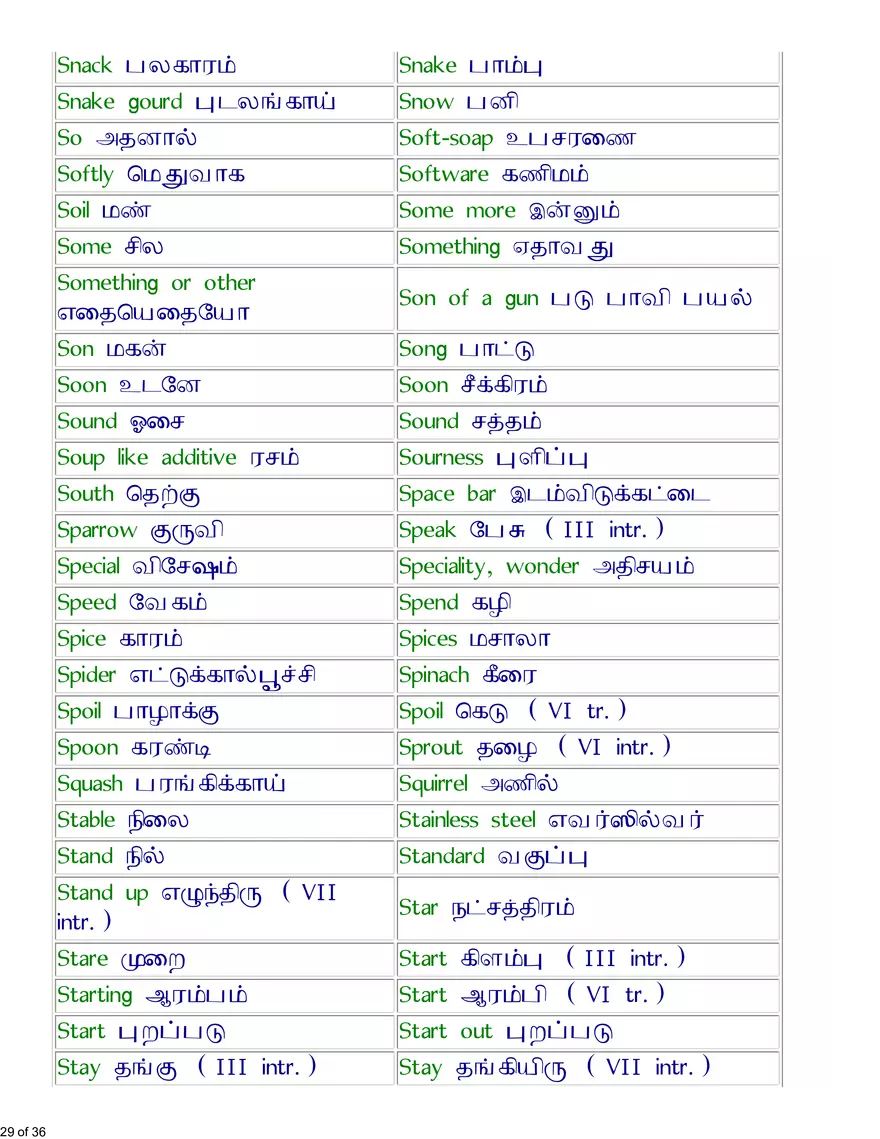 Snack பலகாரம்
Snake பாம்பு
Snake gourd புடலங்காய்
Snow பனி
So அதனால்
Soft-soap உபசரணை
Softly மெதுவாக
Software கணிமம்
Soil மண்
Some more இன்னும்
Some சில
Something ஏதாவது
Something or other
எதையெதையோ
Son of a gun படு பாவி பயல்
Son மகன்
Song பாட்டு
Soon உடனே
Soon சீக்கிரம்
Sound ஓசை
Sound சத்தம்
Soup like additive ரசம்
Sourness புளிப்பு
South தெற்கு
Space bar இடம்விடுக்கட்டை
Sparrow குருவி
Speak பேசு ( III intr. )
Special விசேஷம்
Speciality, wonder அதிசயம்
Speed வேகம்
Spend கழி
Spice காரம்
Spices மசாலா
Spider எட்டுக்கால்பூச்சி
Spinach கீரை
Spoil பாழாக்கு
Spoil கெடு ( VI tr. )
Spoon கரண்டி
Sprout தழை ( VI intr. )
Squash பரங்கிக்காய்
Squirrel அணில்
Stable நிலை
Stainless steel எவர்ஸில்வர்
Stand நில்
Standard வகுப்பு
Stand up எழுந்திரு ( VII
intr. )
Star நட்சத்திரம்
Stare முறை
Start கிளம்பு ( III intr. )
Starting ஆரம்பம்
Start ஆரம்பி ( VI tr. )
Start புறப்படு
Start out புறப்படு
Stay தங்கு ( III intr. )
Stay தங்கியிரு ( VII intr. )
29 of 36